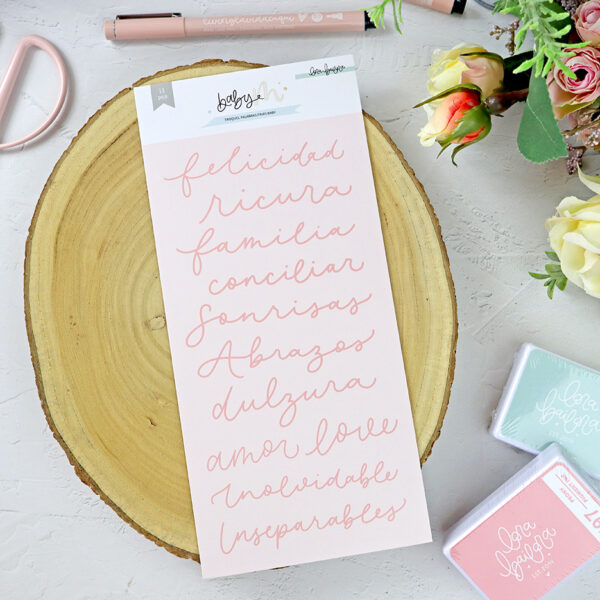 livinglavidaaqui
13
pcs
baby
lora bailora
TROQUEL PALABRAS FINAS BABY
felicidad
ricura
familia
conciliar
Sonrisas
Abrazos
dulzura
amor love
Inolvidable
Inseparables
lora
bailora
lora
bailora